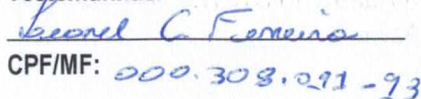 Leonel C Ferreira
CPF/MF: 000.308.091-93